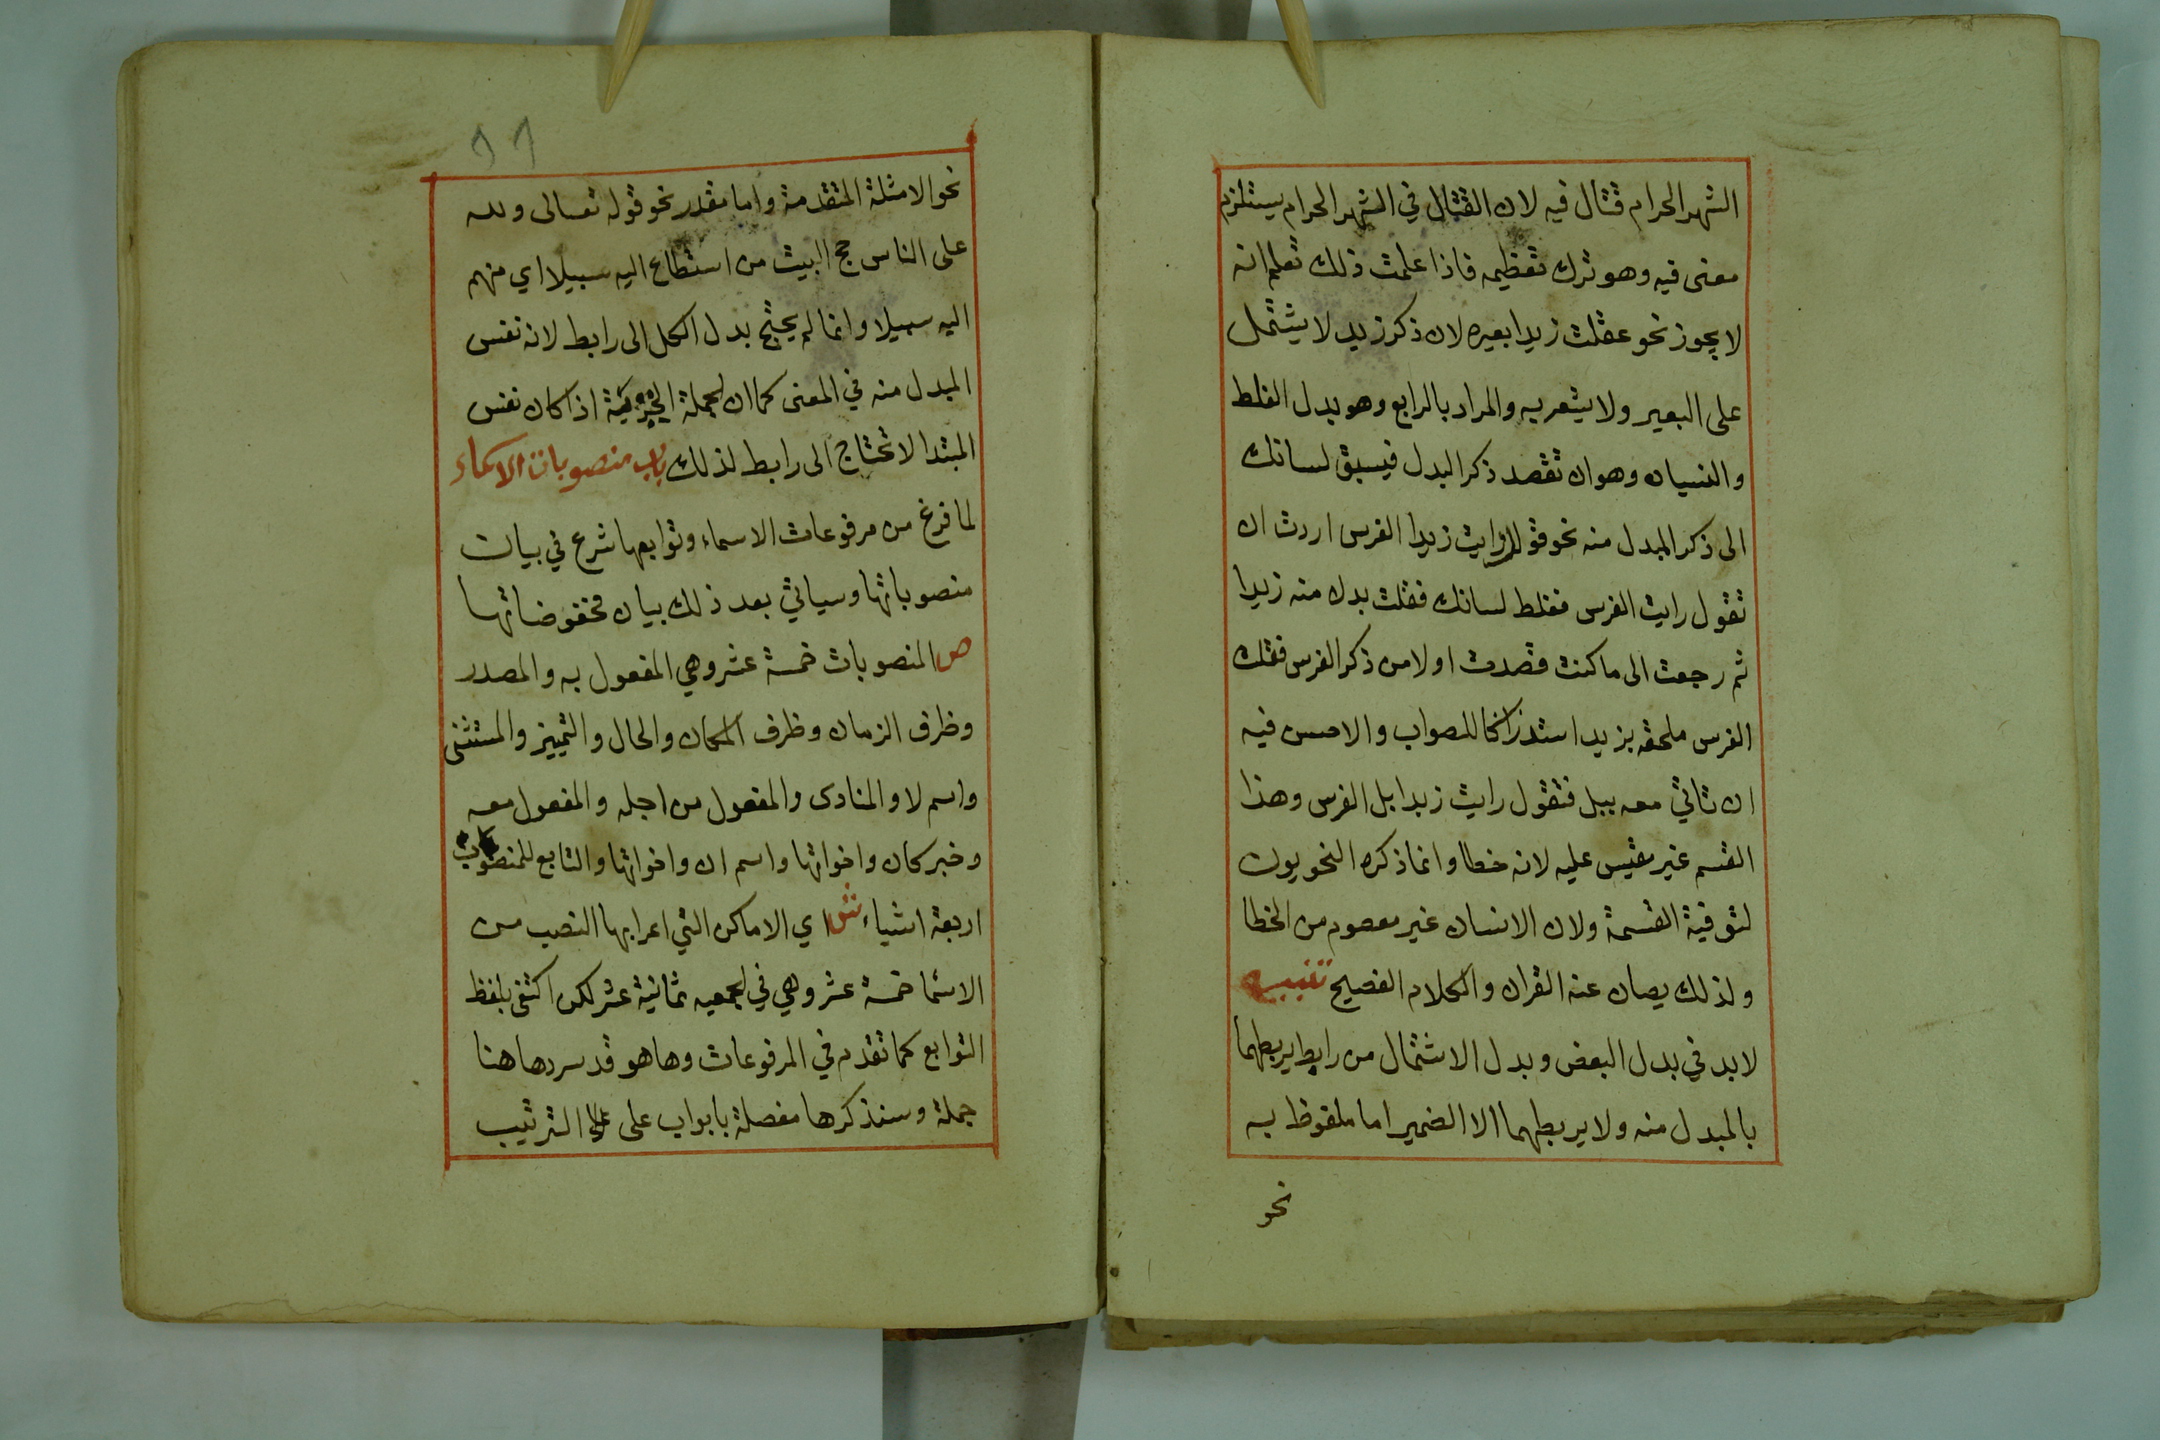 الشهر الحرام قتال فيه لان القتال في الشهر الحرام يستلزم
معنى فيه وهو ترك تعظيمه فاذا علمت ذلك تعلم انه
لا يجوز نحو عقلت زيدا بعيره لان ذكر زيد لا يشتمل
على البعير ولا يشعر به والمراد بالرابع وهو بدل الغلط
والنسيان وهو ان تقصد ذكر البدل فيسبق لسانك
الى ذكر المبدل منه نحو قولك رايت زيدا الفرس اردت ان
تقول رايت الفرس فغلط لسانك فقلت بدل منه زيدا
ثم رجعت الى ما كنت قصدت اولا من ذكر الفرس فقلت
الفرس ملحقه بزيد استدراكا للصواب والاحسن فيه
ان تاتي معه ببل فتقول رايت زيدا بل الفرس وهذا
القسم غير مقيس عليه لانه خطا وانما ذكره النحويون
لتوفية القسمة ولان الانسان غير معصوم من الخطا
ولذلك يصان عنه القران والكلام الفصيح تنبيه
لا بد في بدل البعض وبدل الاشتمال من رابط يربطهما
بالمبدل منه ولا يربطهما الا الضمير اما ملفوظ به
نحو
نحو الامثلة المتقدمة واما مقدر نحو قوله تعالى ولله
على الناس حج البيت من استطاع اليه سبيلا اي منهم
اليه سبيلا وانما لم يحتج بدل الكل الى رابط لانه نفس
المبدل منه في المعنى كما ان الجملة اذا كان نفس
المبتدا لا تحتاج الى رابط لذلك باب منصوبات الاسماء
لما فرغ من مرفوعات الاسماء وتوابعها شرع في بيان
منصوباتها وسياتي بعد ذلك بيان مخفوضاتها
ص المنصوبات خمسة عشر وهي المفعول به والمصدر
وظرف الزمان وظرف المكان والحال والتمييز والمستثنى
واسم لا والمنادى والمفعول من اجله والمفعول معه
وخبر كان واخواتها واسم ان واخواتها والتابع للمنصوب
اربعة اشياء ش اي الاماكن التي اعرابها النصب من
الاسما خمسة عشر وهي في الجمعيه ثمانية عشر لكن اكتفى بلفظ
التوابع كما تقدم في المرفوعات وها هو قد سردها هنا
جملة وسنذكرها مفصلة بابواب على الترتيب